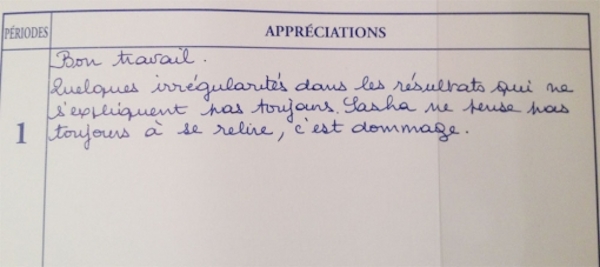 PÉRIODES APPRÉCIATIONS
1
Bon travail.
Quelques irrégularités dans les résultats qui ne
s'expliquent pas toujours. Sasha ne pense pas
toujours à se relire, c'est dommage.